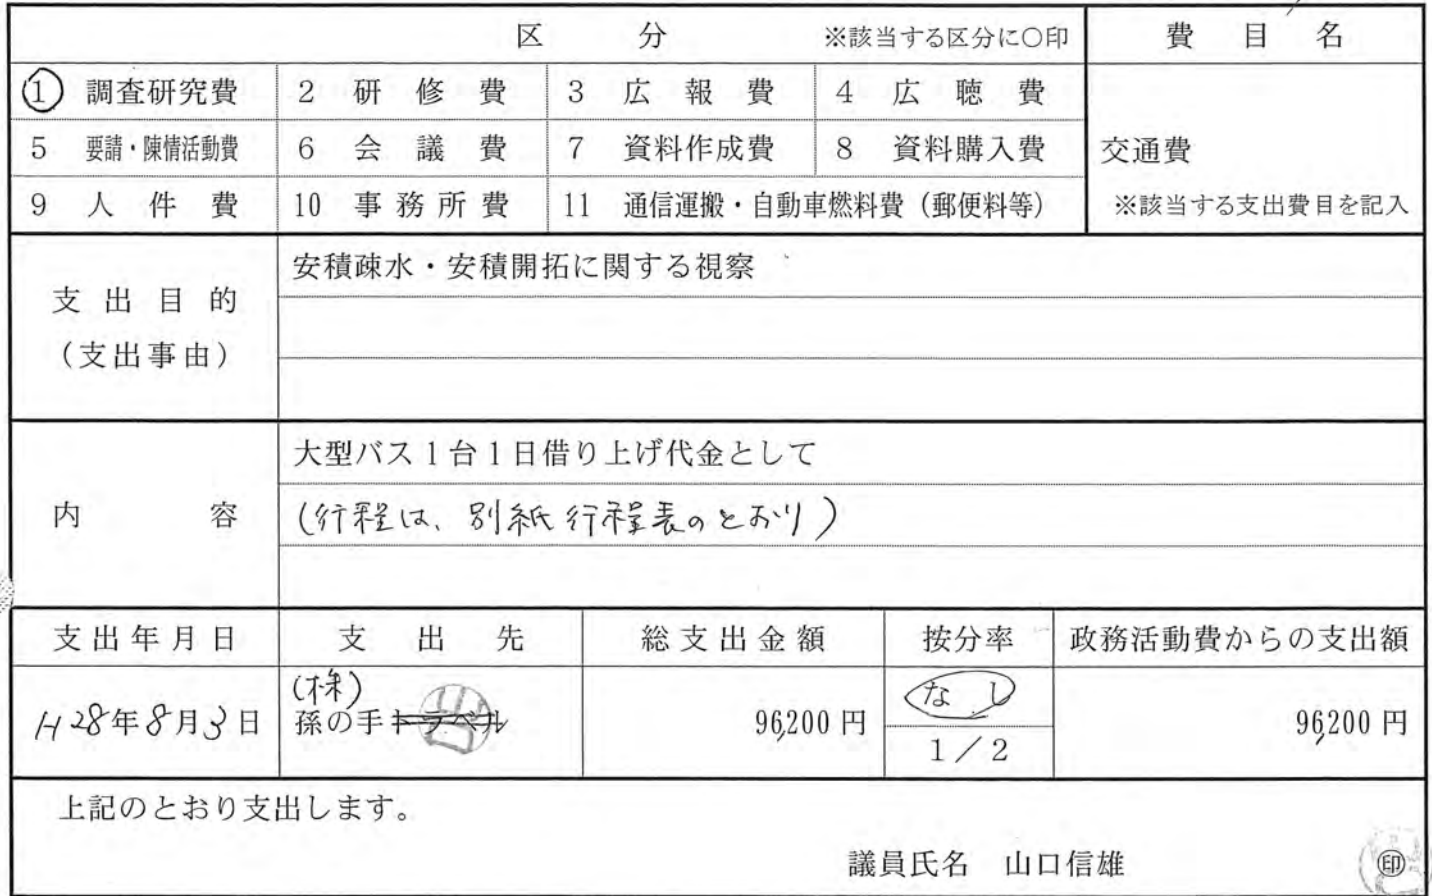 区 分 ※該当する区分に○印 費 目 名
① 調査研究費 2 研 修 費 3 広 報 費 4 広 聴 費
5 要請・陳情活動費 6 会 議 費 7 資料作成費 8 資料購入費 交通費
9 人 件 費 10 事務所費 11 通信運搬・自動車燃料費（郵便料等） ※該当する支出費目を記入
支出目的
（支出事由）
安積疎水・安積開拓に関する視察
内 容
大型バス1台1日借り上げ代金として
(行程は、別紙行程表のとおり)
支出年月日 支 出 先 総支出金額 按分率 政務活動費からの支出額
(株)
H28年8月3日 孫の手トラベル 96,200円 なし 96,200円
1／2
上記のとおり支出します。
議員氏名 山口信雄 ㊞